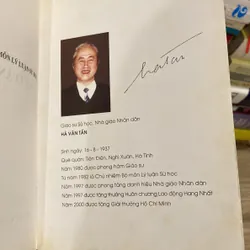 MÔN LÝ LUẬN
hatan
Giáo sư Sử học, Nhà giáo Nhân dân
HÀ VĂN TẤN
Sinh ngày: 16 - 8 - 1937
Quê quán: Tiên Điền, Nghi Xuân, Hà Tĩnh
Năm 1980 được phong hàm Giáo sư
Từ năm 1982 là Chủ nhiệm Bộ môn Lý luận Sử học
Năm 1997 được phong tặng danh hiệu Nhà giáo Nhân dân
Năm 1997 được tặng thưởng Huân chương Lao động Hạng Nhất
Năm 2000 được tặng Giải thưởng Hồ Chí Minh